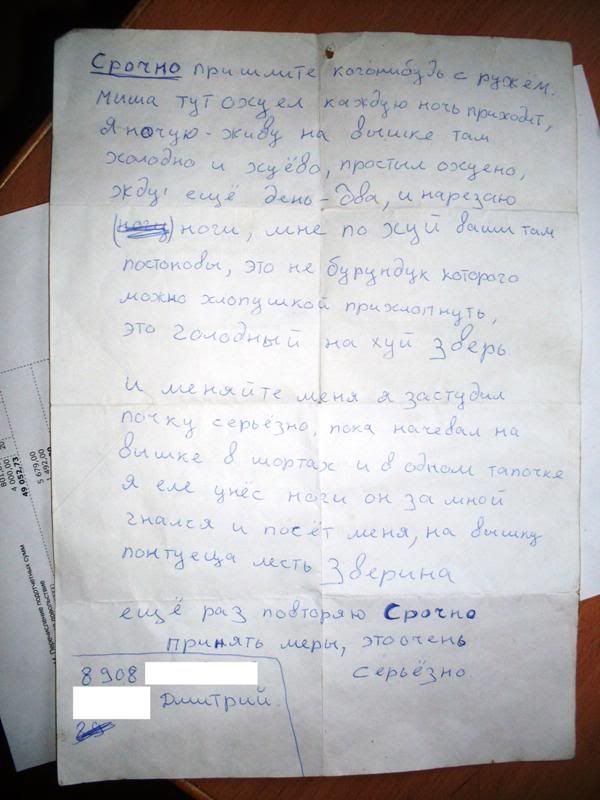 Срочно пришлите когонибудь с ружём.
миша тут охуел каждую ночь приходит,
я ночую-живу на вышке там
холодно и хуёво, простыл охуено,
жду ещё день-два, и нарезаю
ноги, мне по хуй ваши там
постоновы, это не бурундук которого
можно хлопушкой прихлопнуть,
это голодный на хуй зверь
и меняйте меня я застудил
почку серьёзно, пока начевал на
вышке в шортах и в одном тапочке
я еле унёс ноги он за мной
гнался и посёт меня, на вышку
понтуеща лесть зверина
ещё раз повторяю Срочно
принять меры, это очень
серьёзно.
8908
Дмитрий.
49 052,73
4 000,00
5 679,00
1 492,00